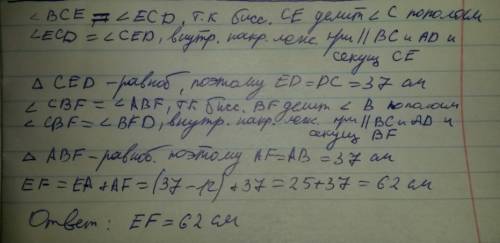 ∠BCE = ∠ECD, т.к бисс. CE делит ∠C пополам
∠ECD = ∠CED, внутр. накр. леж. при || BC и AD и
секущ CE
△ CED - равноб, поэтому ED = DC = 37 см
∠CBF = ∠ABF, т.к бисс. BF делит ∠ B пополам
∠CBF = ∠BFD, внутр. накр. леж. при || BC и AD и
секущ BF
△ ABF - равноб. поэтому AF = AB = 37 см
EF = EA + AF = (37 - 12) + 37 = 25 + 37 = 62 см
Ответ: EF = 62 см